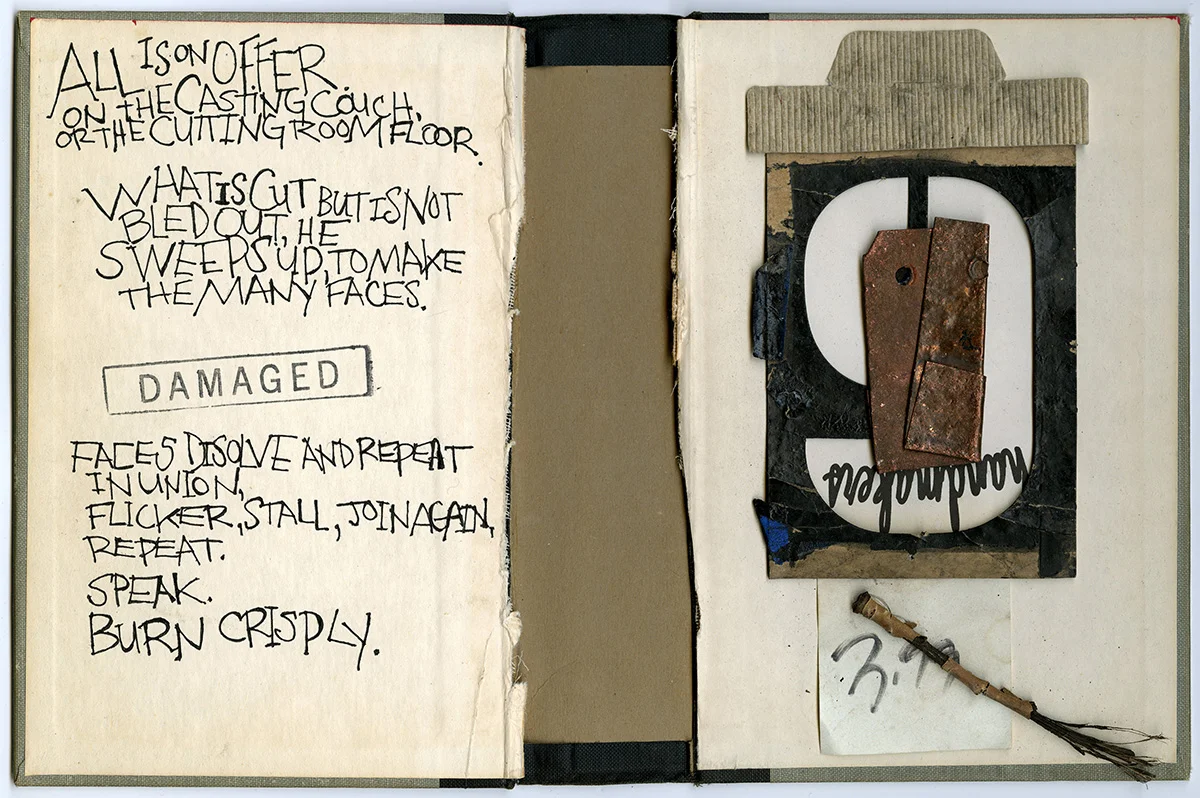 ALL IS ON OFFER
ON THE CASTING COUCH.
OR THE CUTTING ROOM FLOOR.
WHAT IS CUT BUT IS NOT
BLED OUT, HE
SWEEPS UP, TO MAKE
THE MANY FACES.
DAMAGED
FACES DISOLVE AND REPEAT
IN UNION,
FLICKER, STALL, JOIN AGAIN,
REPEAT.
SPEAK.
BURN CRISPLY.
9
handmakers
3.99